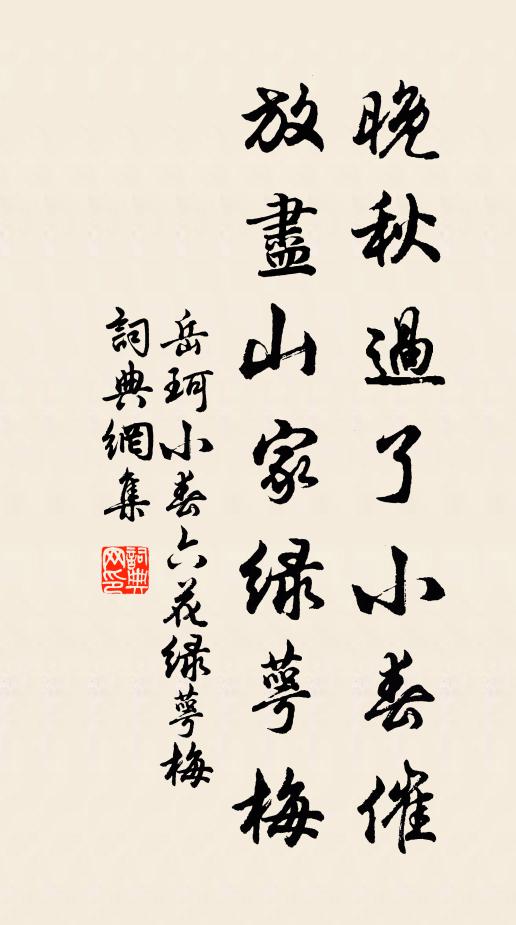 晚秋過了小春催
放盡山家綠萼梅
岳珂小春六花綠萼梅
詞典網集
詞典网印